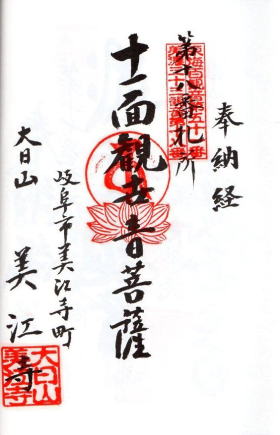 奉納経
第十八番札所
十一面觀世音菩薩
岐阜市美江寺町
大日山 美江寺
大日山
美江寺